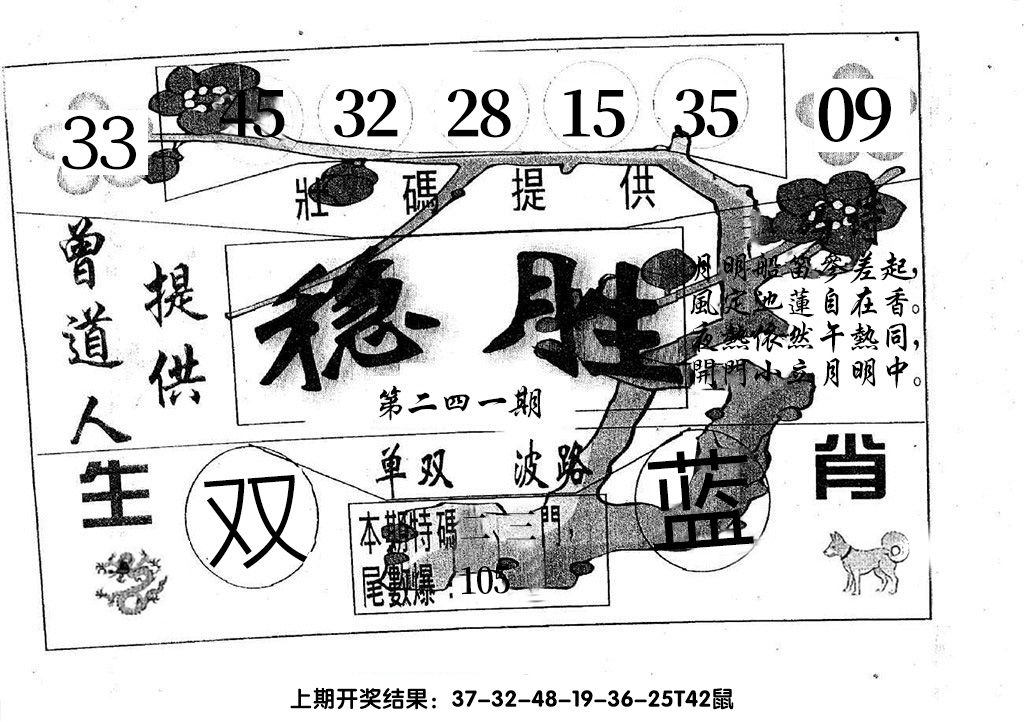 33 45 32 28 15 35 09
壯碼提供
曾道人
提供
稳胜
第二四一期
月明船笛參差起,
風定池蓮自在香。
夜熱依然午熱同,
開門小立月明中。
单双 波路
生肖
双
蓝
本期特碼二、三門,
尾數爆:105
上期开奖结果:37-32-48-19-36-25T42鼠